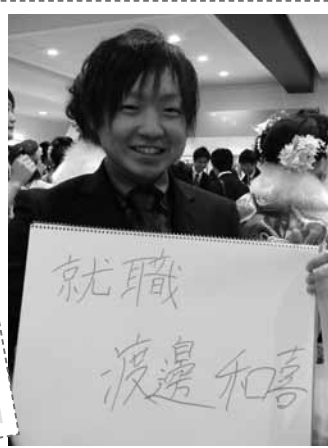 就職
渡邊和喜